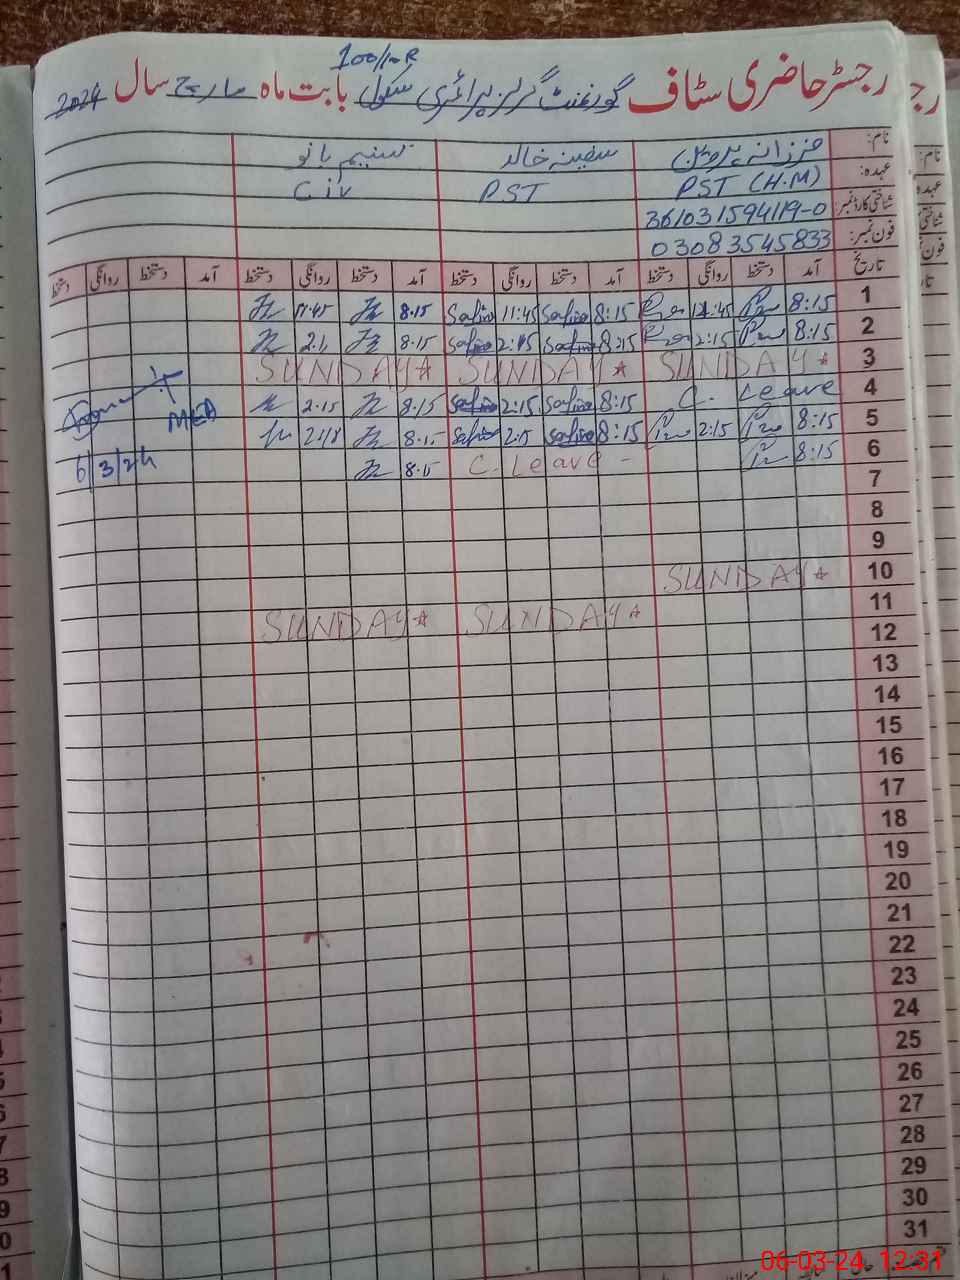 100/10R
رجسٹر حاضری سٹاف گورنمنٹ گرلز پرائمری سکول بابت ماہ مارچ سال 2024
نام: فرزانہ پروین سفینہ خالد تسنیم بانو
عہدہ: PST (H.M) PST Civ
شناختی کارڈ نمبر: 361031594119-0
فون نمبر: 03083545833
تاریخ آمد دستخط روانگی دستخط آمد دستخط روانگی دستخط آمد دستخط روانگی دستخط آمد دستخط روانگی دستخط
1 8:15 11:45 8:15 Safina 11:45 Safina 8.15 11.45
2 8:15 2:15 8:15 Safina 2:15 Safina 8.15
3 SUNDAY SUNDAY SUNDAY
4 C. Leave 8:15 Safina 2:15 Safina 8.15 2.15
5 8:15 2:15 8:15 Safina 2:15 Safina 8.15
MEA
6 8:15 C. Leave - 8.15
6/3/24
7
8
9
10 SUNDAY
11
12 SUNDAY SUNDAY
13
14
15
16
17
18
19
20
21
22
23
24
25
26
27
28
29
30
31
06-03-24, 12:31